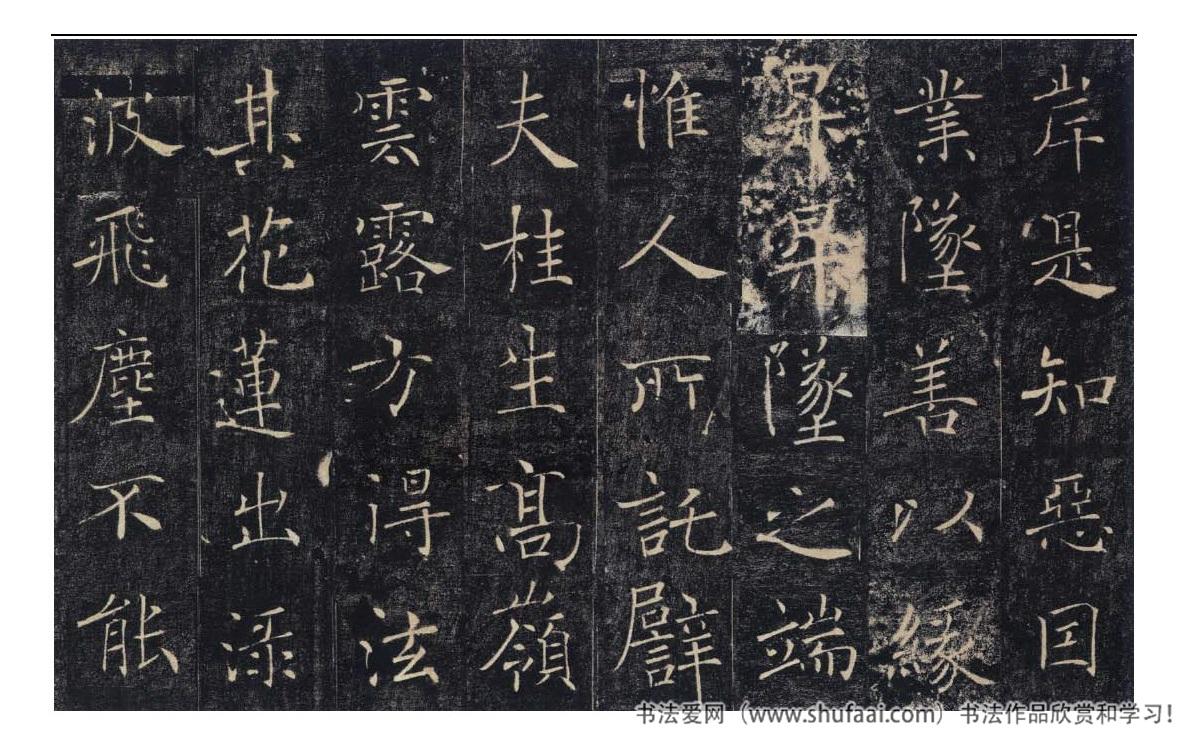 岸是知惡因
業墜善以緣
昇昇墜之端
惟人所託譬
夫桂生髙嶺
雲露方得泫
其花蓮出渌
波飛塵不能
书法爱网（www.shufaai.com）书法作品欣赏和学习！